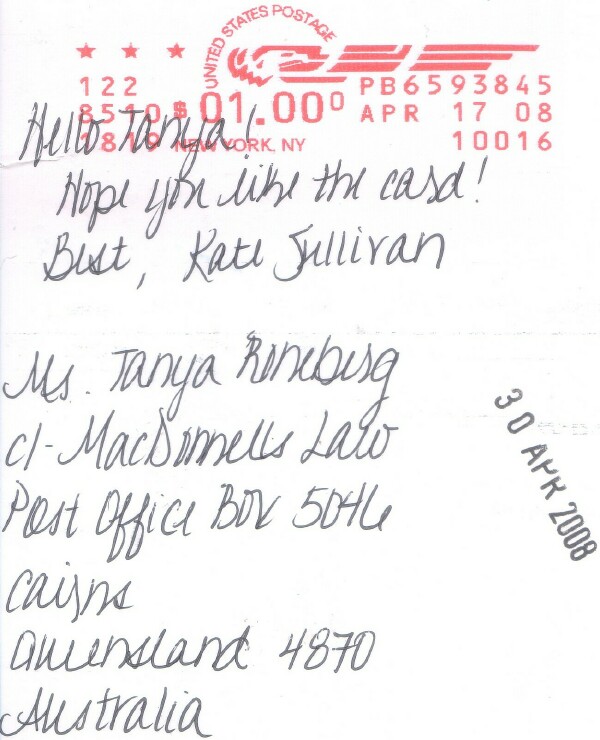 UNITED STATES POSTAGE
122 PB6593845
8510 $01.000 APR 17 08
819 NEW YORK, NY 10016
Hello Tanya!
Hope you like the card!
Best, Kate Sullivan
Ms. Tanya Roneberg
c/- MacDonnells Law
Post Office Box 5046
Cairns
Queensland 4870
Australia
30 APR 2008